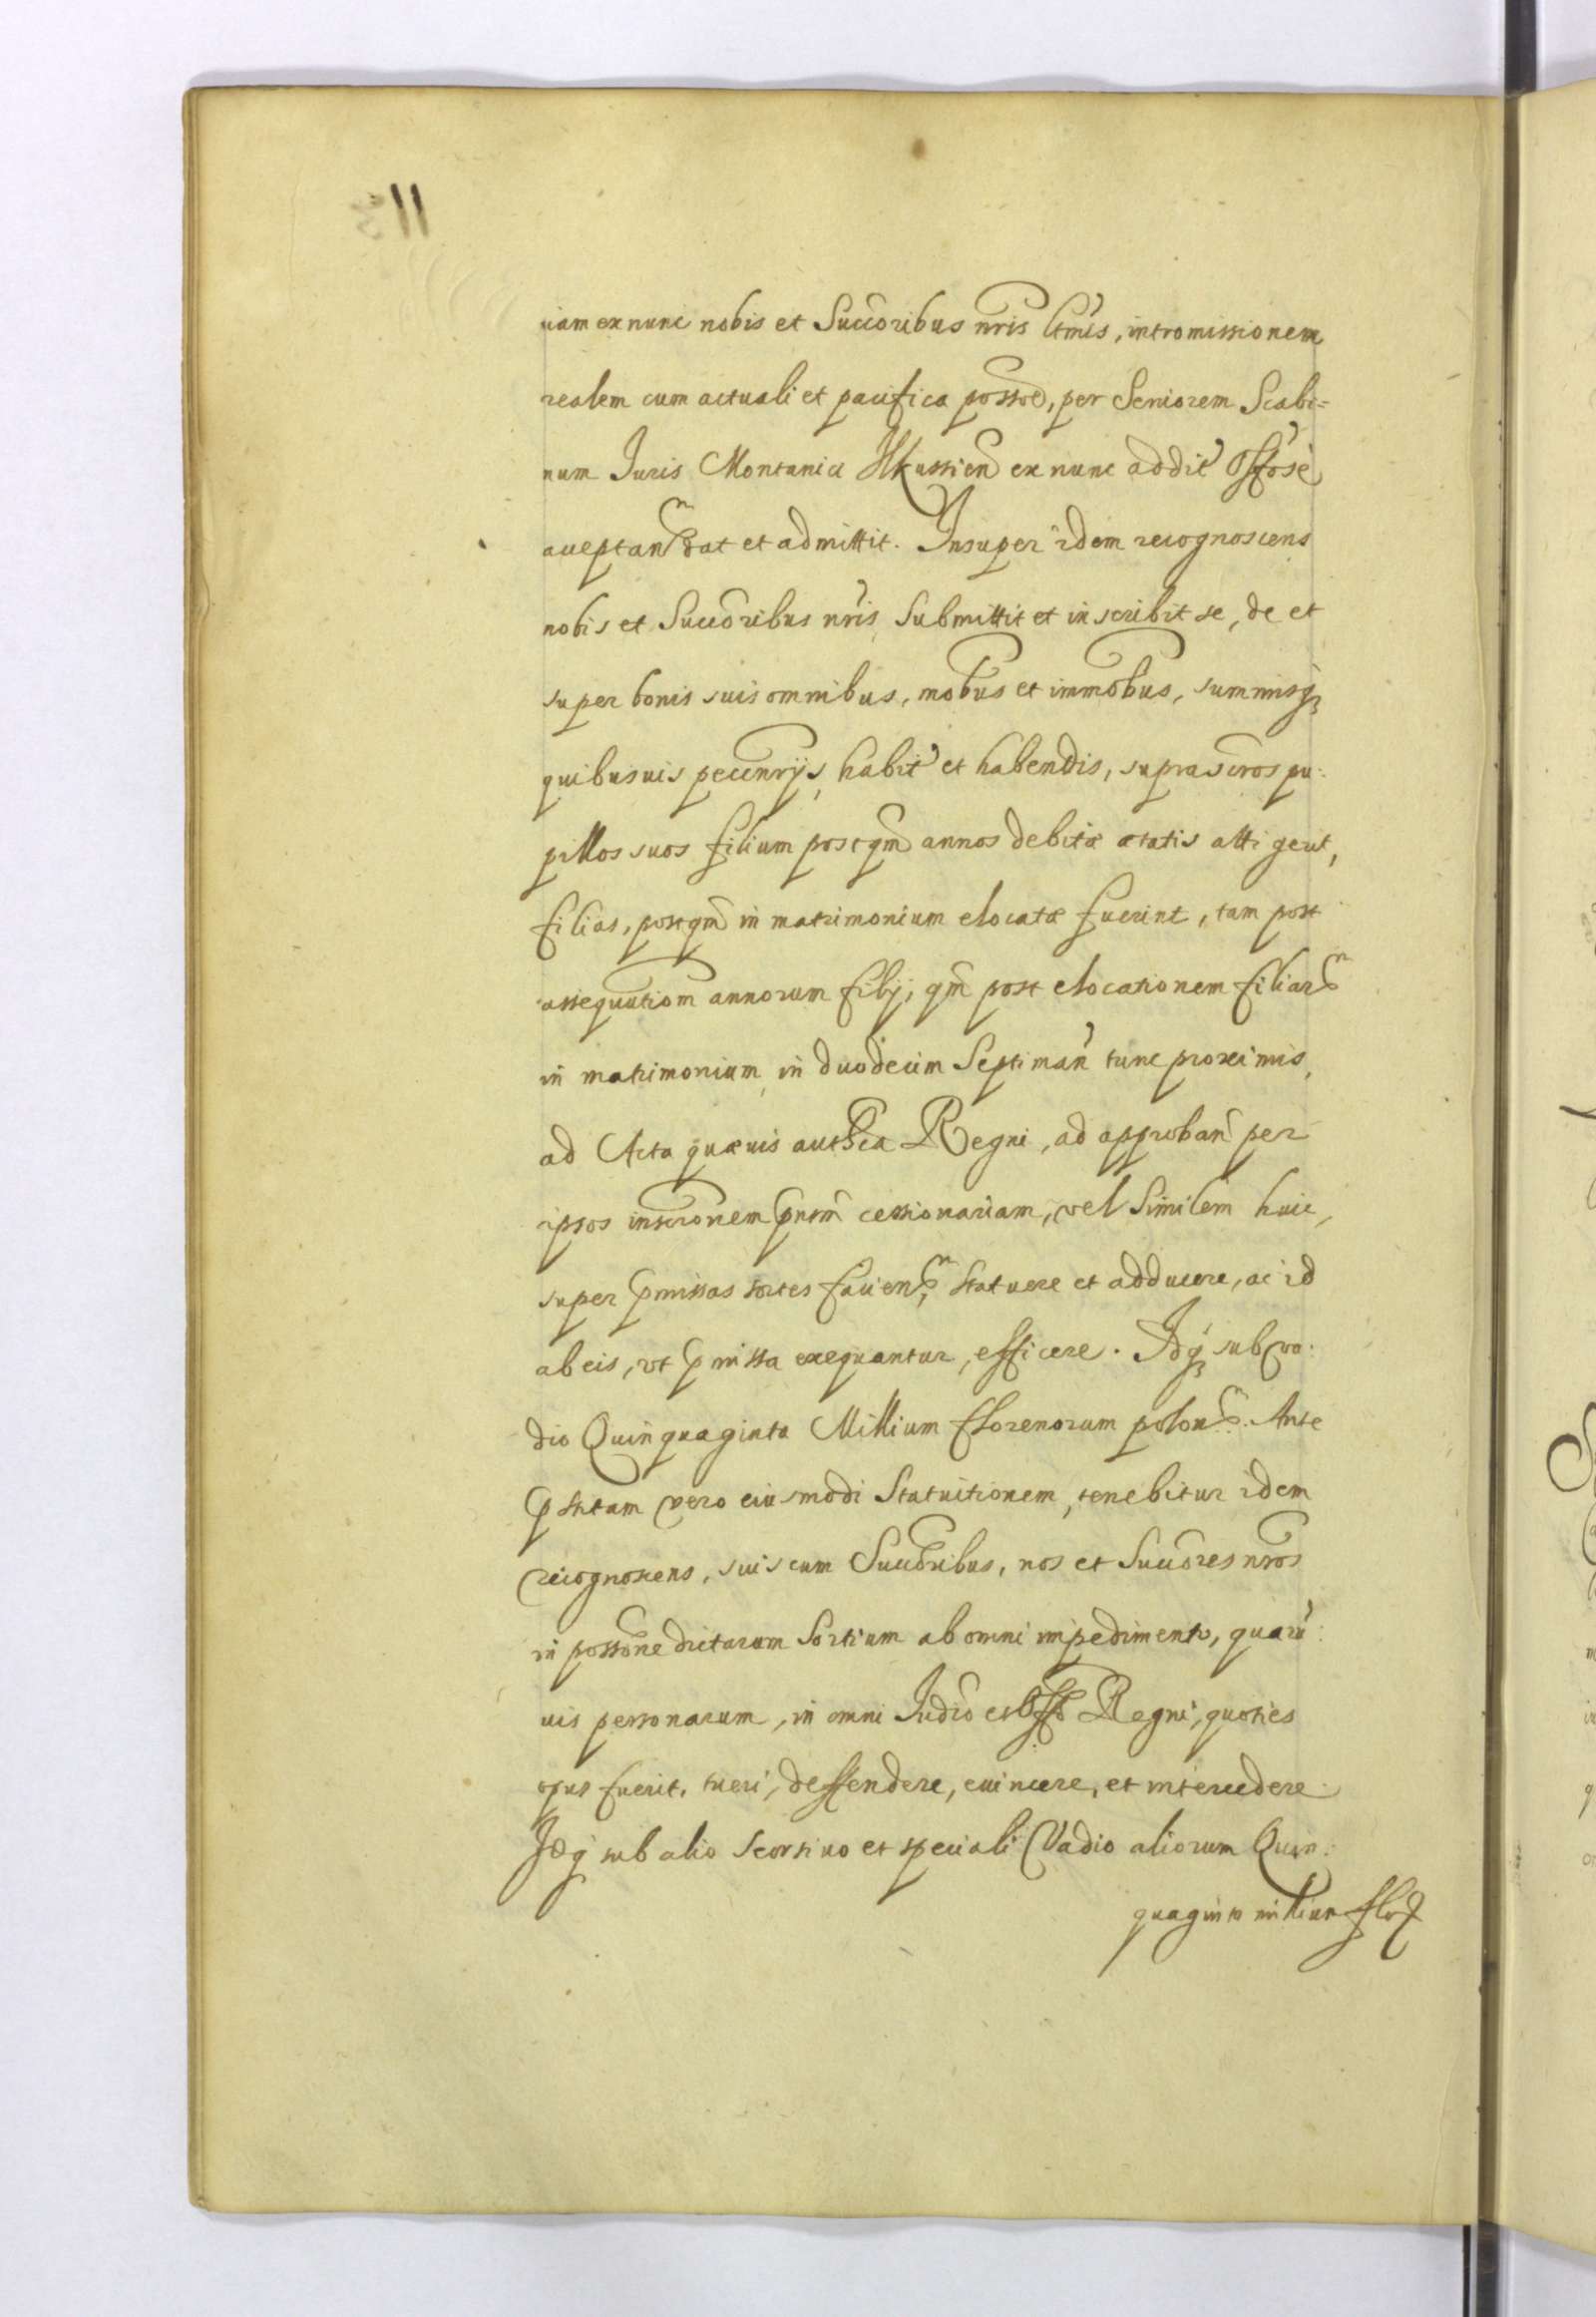 uiam ex nunc nobis et Succoribus nris ltmis, intromissionem
realem cum actuali et pacifica possoe, per Seniorem Scabi=
num Juris Montanici Ilkussien ex nunc addit Offose
acceptan dat et admittit. Insuper idem recognoscens
nobis et Succoribus nris Submittit et inscribit se, de et
super bonis suis omnibus, mobus et immobus, summisq
quibusuis pecunrijs, habit et habendis, suprascros pu:
pillos suos filium postqm annos debitæ ætatis attigerit,
filias, postqm in matrimonium elocatæ fuerint, tam post
assequutiom annorum filij, qm post elocationem filiar
in matrimonium in duodecim Septiman tunc proximis,
ad Acta quæuis authca Regni, ad approban per
ipsos inscronem pntm cessionariam, vel Similem huic,
super pmissas sortes facien, statuere et adducere, ac id
ab eis, vt pmissa exequantur, efficere. Idq sub va:
dio Quinquaginta Millium florenorum polon. Ante
pstitam vero eiusmodi Statuitionem, tenebitur idem
recognoscens, suis cum Succoribus, nos et Succores nros
in possone dictarum Sortium ab omni impedimento, quaru:
uis personarum, in omni Judio et Offo Regni, quoties
opus fuerit, tueri, deffendere, euincere, et intercedere
Idq sub alio seorsiuo et speciali Vadio aliorum Quin:
quaginta millium flor